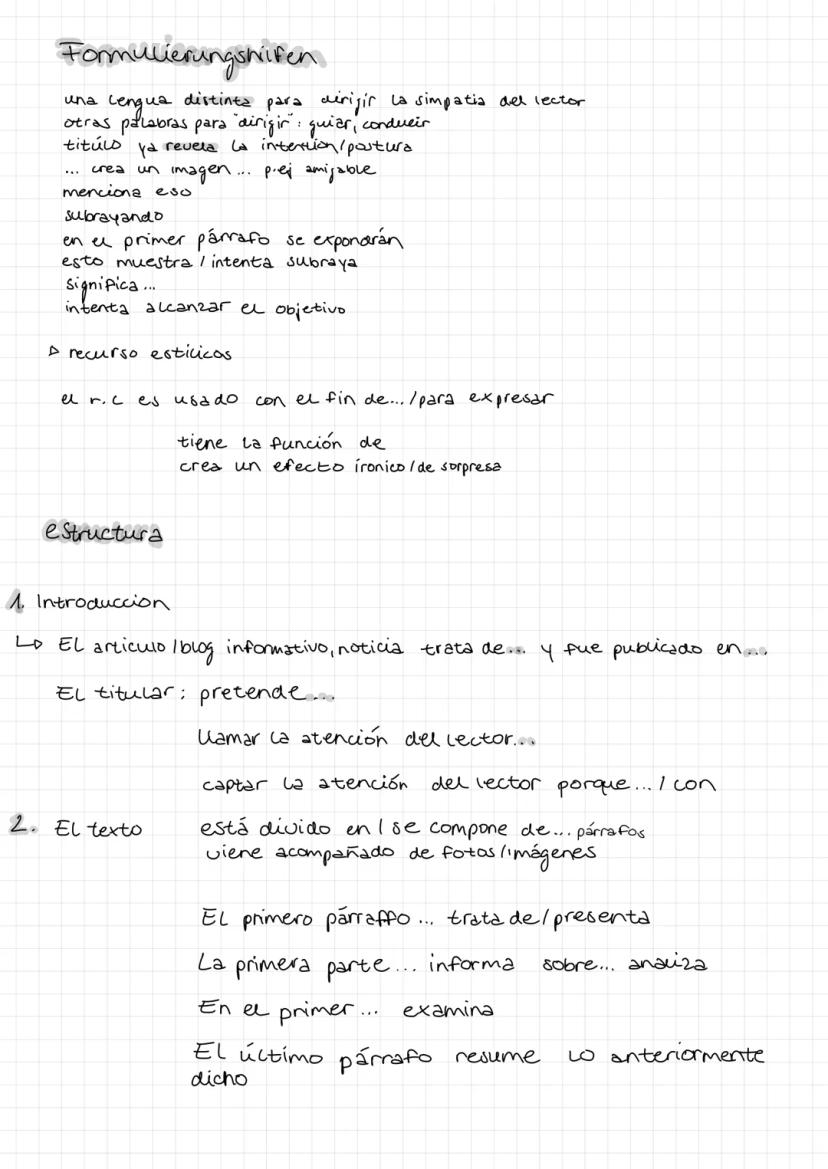 Formulierungshilfen
una lengua distinta para dirigir la simpatia del lector
otras palabras para "dirigir": guiar, conducir
titúlo ya revela la intention/postura
... crea un imagen ... p.ej amigable
menciona eso
subrayando
en el primer párrafo se expondrán
esto muestra / intenta subraya
significa ...
intenta alcanzar el objetivo
▷ recurso estilicos
el r.c es usado con el fin de... /para expresar
tiene la función de
crea un efecto íronico / de sorpresa
estructura
1. Introduccion
↳ El articulo / blog informativo, noticia trata de... y fue publicado en...
El titular: pretende...
llamar la atención del lector...
captar la atención del lector porque... / con
2. El texto está divido en / se compone de... párrafos
viene acompañado de fotos / imágenes
El primero párraffo ... trata de / presenta
La primera parte ... informa sobre... analiza
En el primer ... examina
El último párrafo resume lo anteriormente
dicho